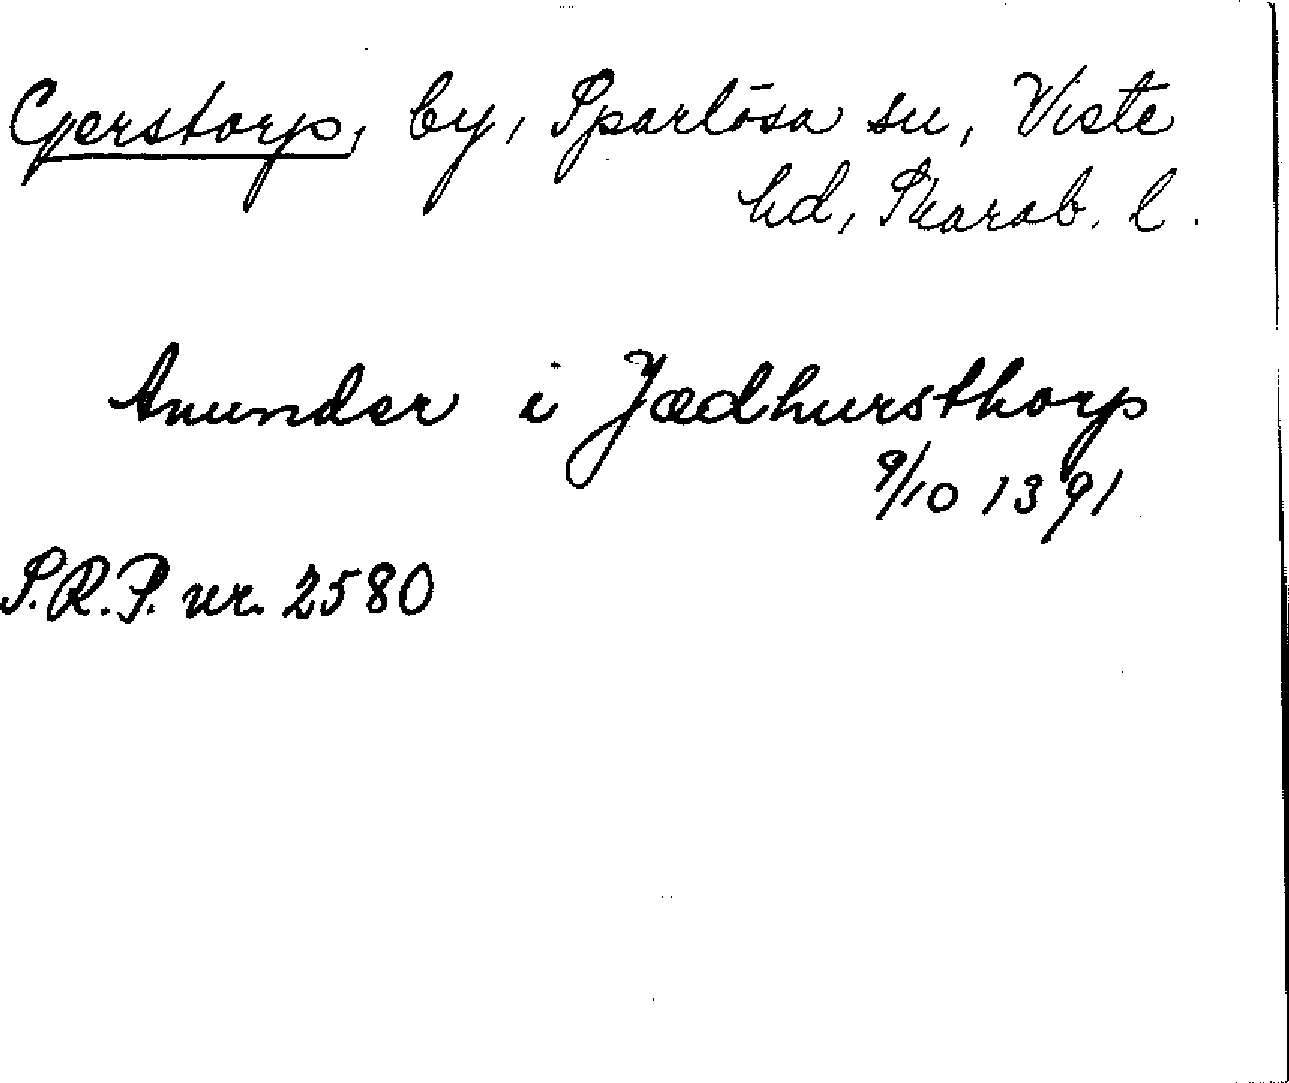 Gerstorp, by, Sparlösa sn, Viste
hd, Skarab. l.
Anunder i Jædhursthorp
9/10 1391
S.R.P. nr. 2580